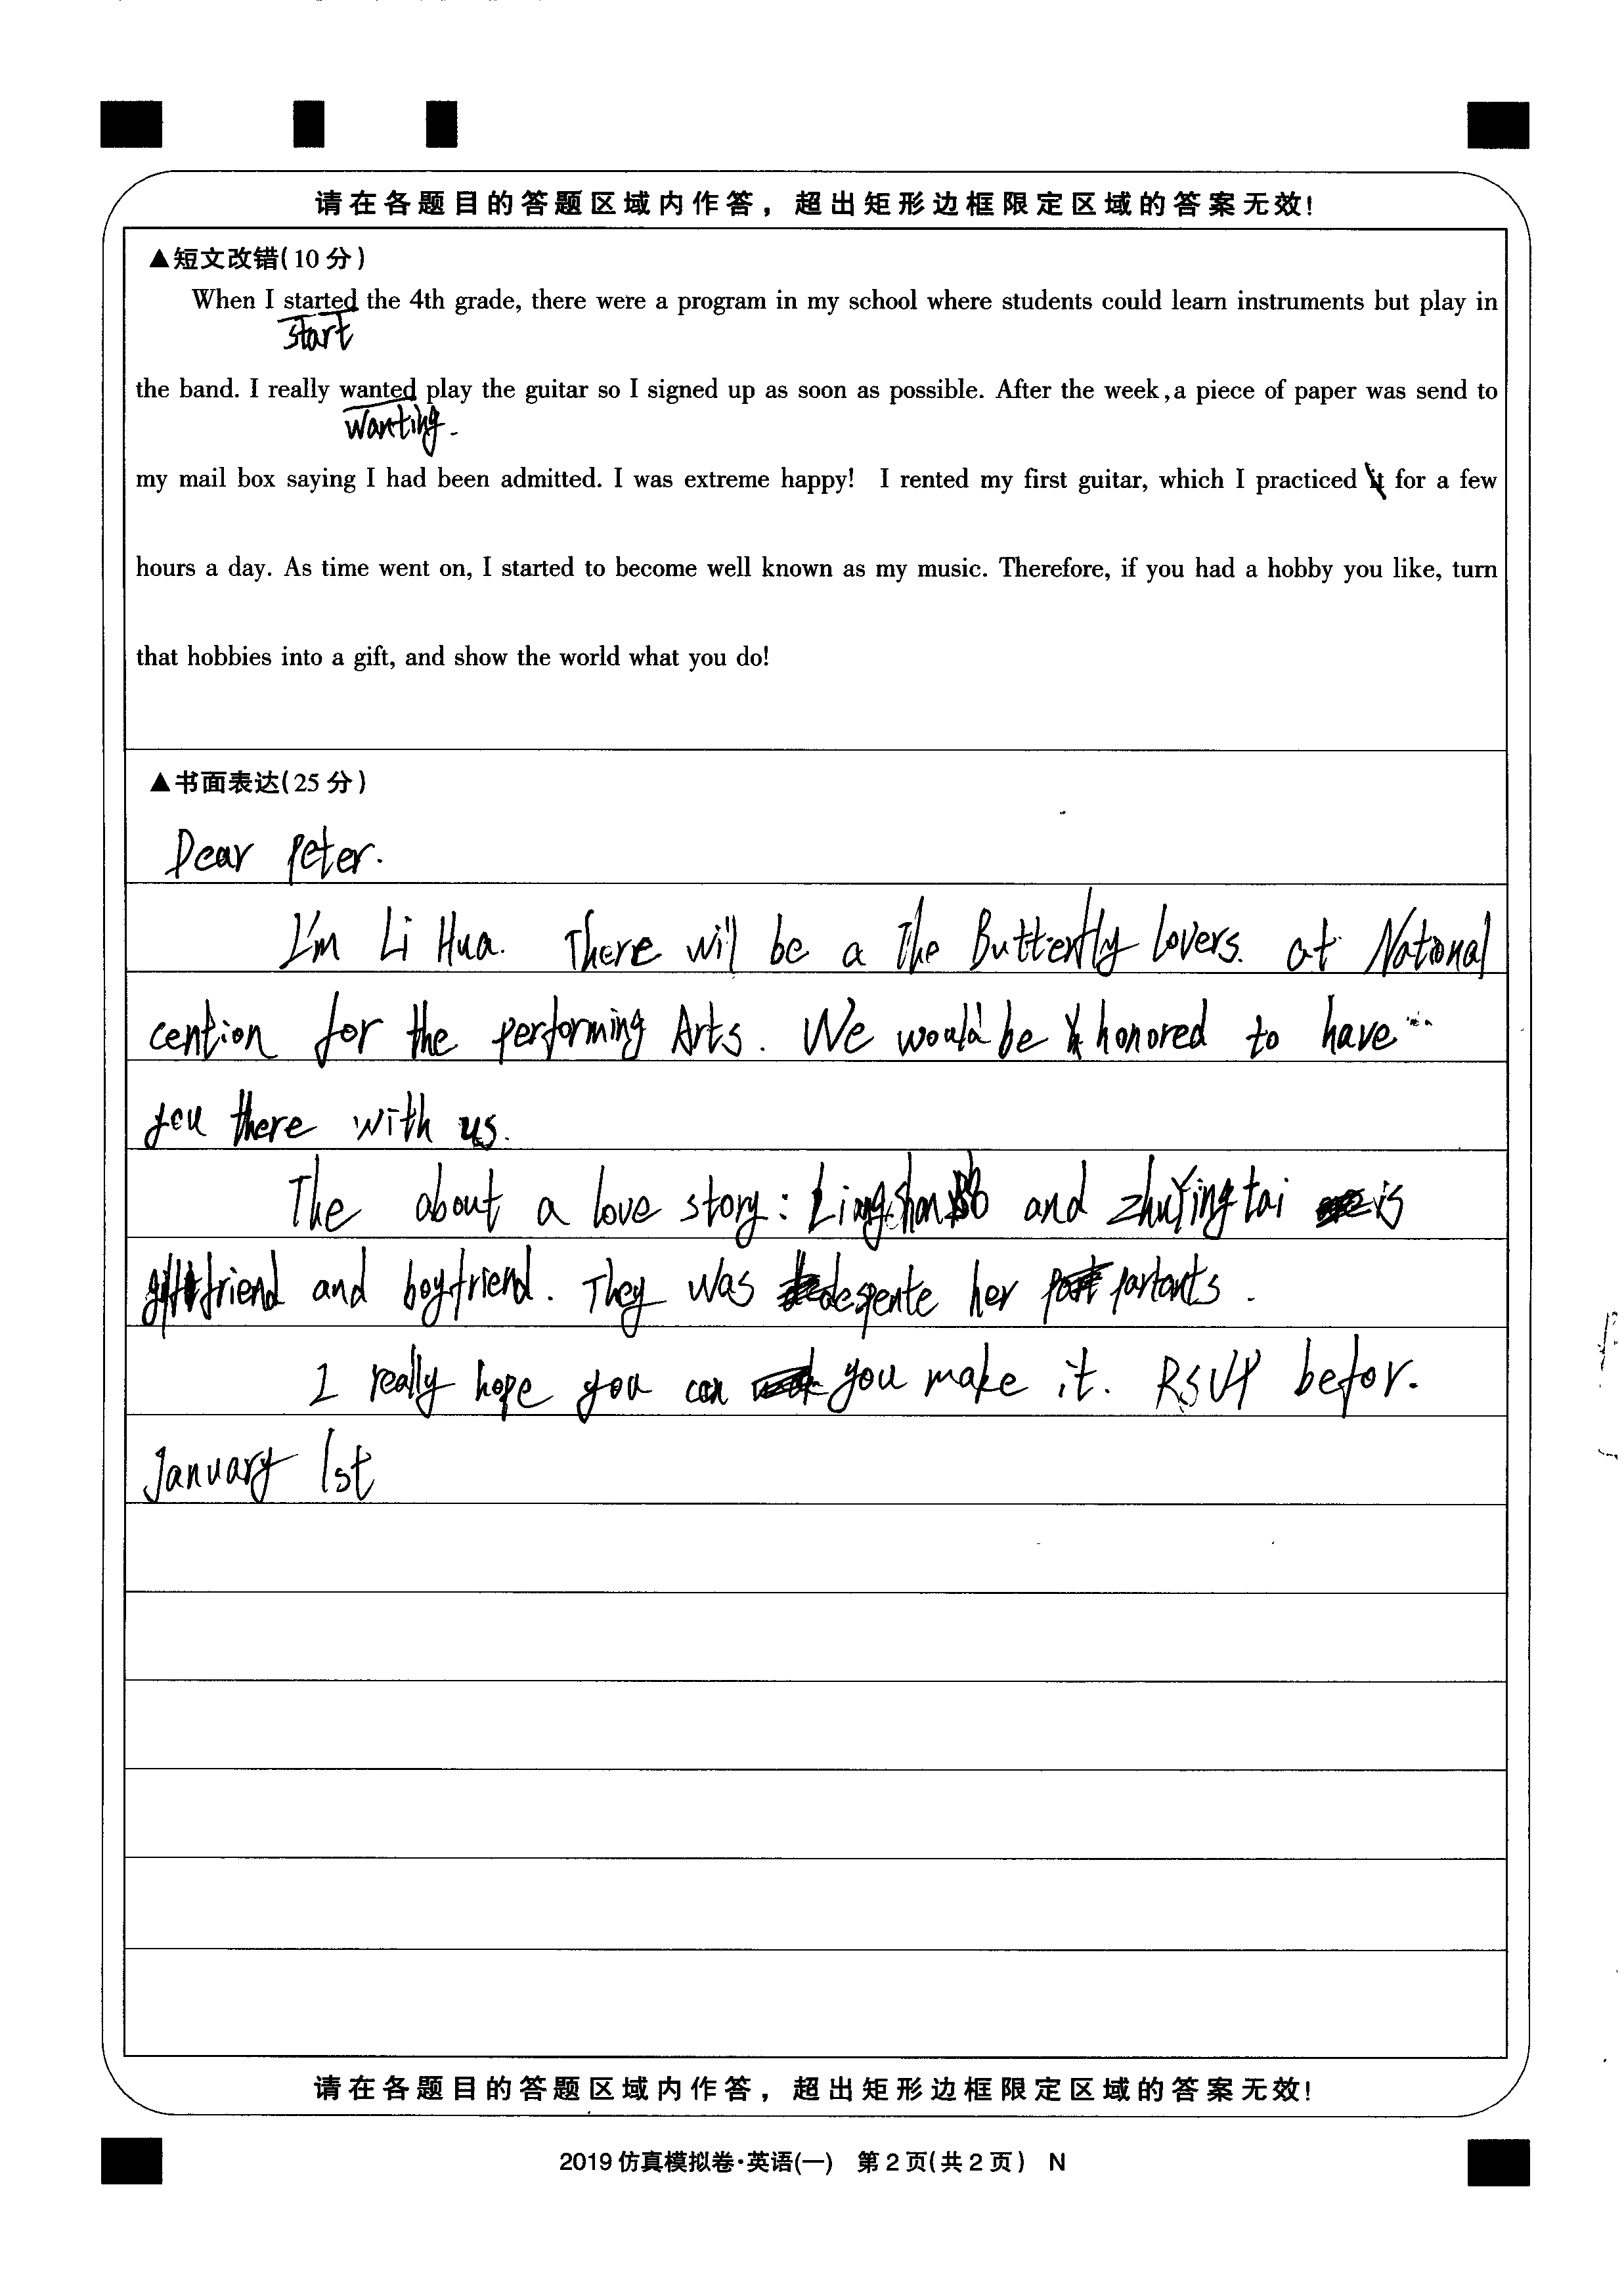 请在各题目的答题区域内作答，超出矩形边框限定区域的答案无效!
▲短文改错(10分)
When I started the 4th grade, there were a program in my school where students could learn instruments but play in
start
the band. I really wanted play the guitar so I signed up as soon as possible. After the week,a piece of paper was send to
wanting.
my mail box saying I had been admitted. I was extreme happy! I rented my first guitar, which I practiced it for a few
hours a day. As time went on, I started to become well known as my music. Therefore, if you had a hobby you like, turn
that hobbies into a gift, and show the world what you do!
▲书面表达(25分)
Dear Peter.
I'm Li Hua. There will be a The Butterfly lovers. at National
cention for the performing Arts. We would be honored to have
you there with us.
The about a love story: and zhuYingtai is
friend and boyfriend. They was despente her partants.
I really hope you can you make it. RSVP befor.
January 1st
请在各题目的答题区域内作答，超出矩形边框限定区域的答案无效!
2019仿真模拟卷·英语(一) 第2页(共2页) N